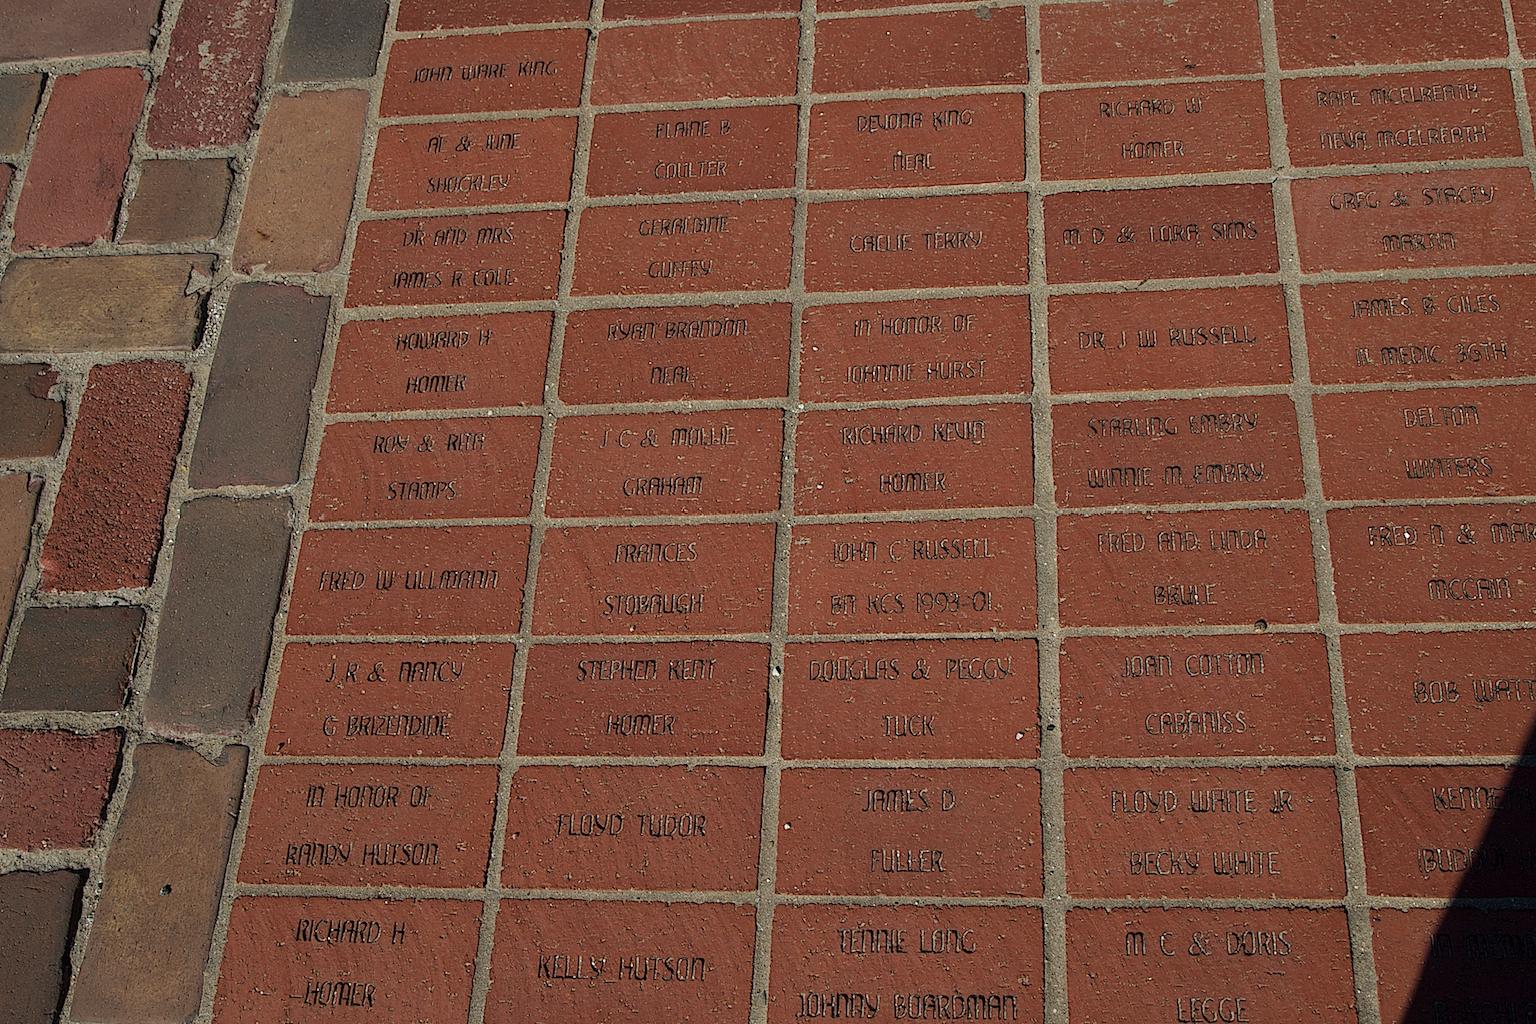 JOHN WARE KING
AL & JUNE
SHOCKLEY
ELAINE B
COULTER
DEVONA KING
NEAL
RICHARD W
HOMER
RAPE MCELREATH
NEVA MCELREATH
DR AND MRS
JAMES R COLE
GERALDINE
GUFFEY
CALLIE TERRY
M D & LORA SIMS
GREG & STACEY
MARTIN
HOWARD H
HOMER
RYAN BRANDON
NEAL
IN HONOR OF
JOHNNIE HURST
DR J W RUSSELL
JAMES B GILES
MEDIC 36TH
ROY & RITA
STAMPS
J C & MOLLIE
GRAHAM
RICHARD KEVIN
HOMER
STARLING EMBRY
WINNIE M EMBRY
DELTON
WINTERS
FRED W ULLMANN
FRANCES
STOBAUGH
JOHN C RUSSELL
BM KCS 1993-01
FRED AND LINDA
BRULE
FRED N & MAR
MCCAIN
J R & NANCY
G BRIZENDINE
STEPHEN KENT
HOMER
DOUGLAS & PEGGY
TUCK
JOAN COTTON
CABANISS
BOB WATT
IN HONOR OF
RANDY HUTSON
FLOYD TUDOR
JAMES D
FULLER
FLOYD WHITE JR
BECKY WHITE
KENNE
RICHARD H
HOMER
KELLY HUTSON
TENNIE LONG
JOHNNY BOARDMAN
M C & DORIS
LEGGE